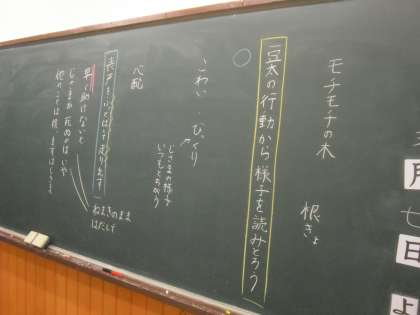 モチモチの木
根きょ
豆太の行動から様子を読みとろう
こわい・びっくり
じさまの様子
いつもとちがう
心配
表戸を体でふっとばして走り出す
ねまきのまま
はだしで
早く助けないと
じさまが死ぬのはいや
月
七
日
よ